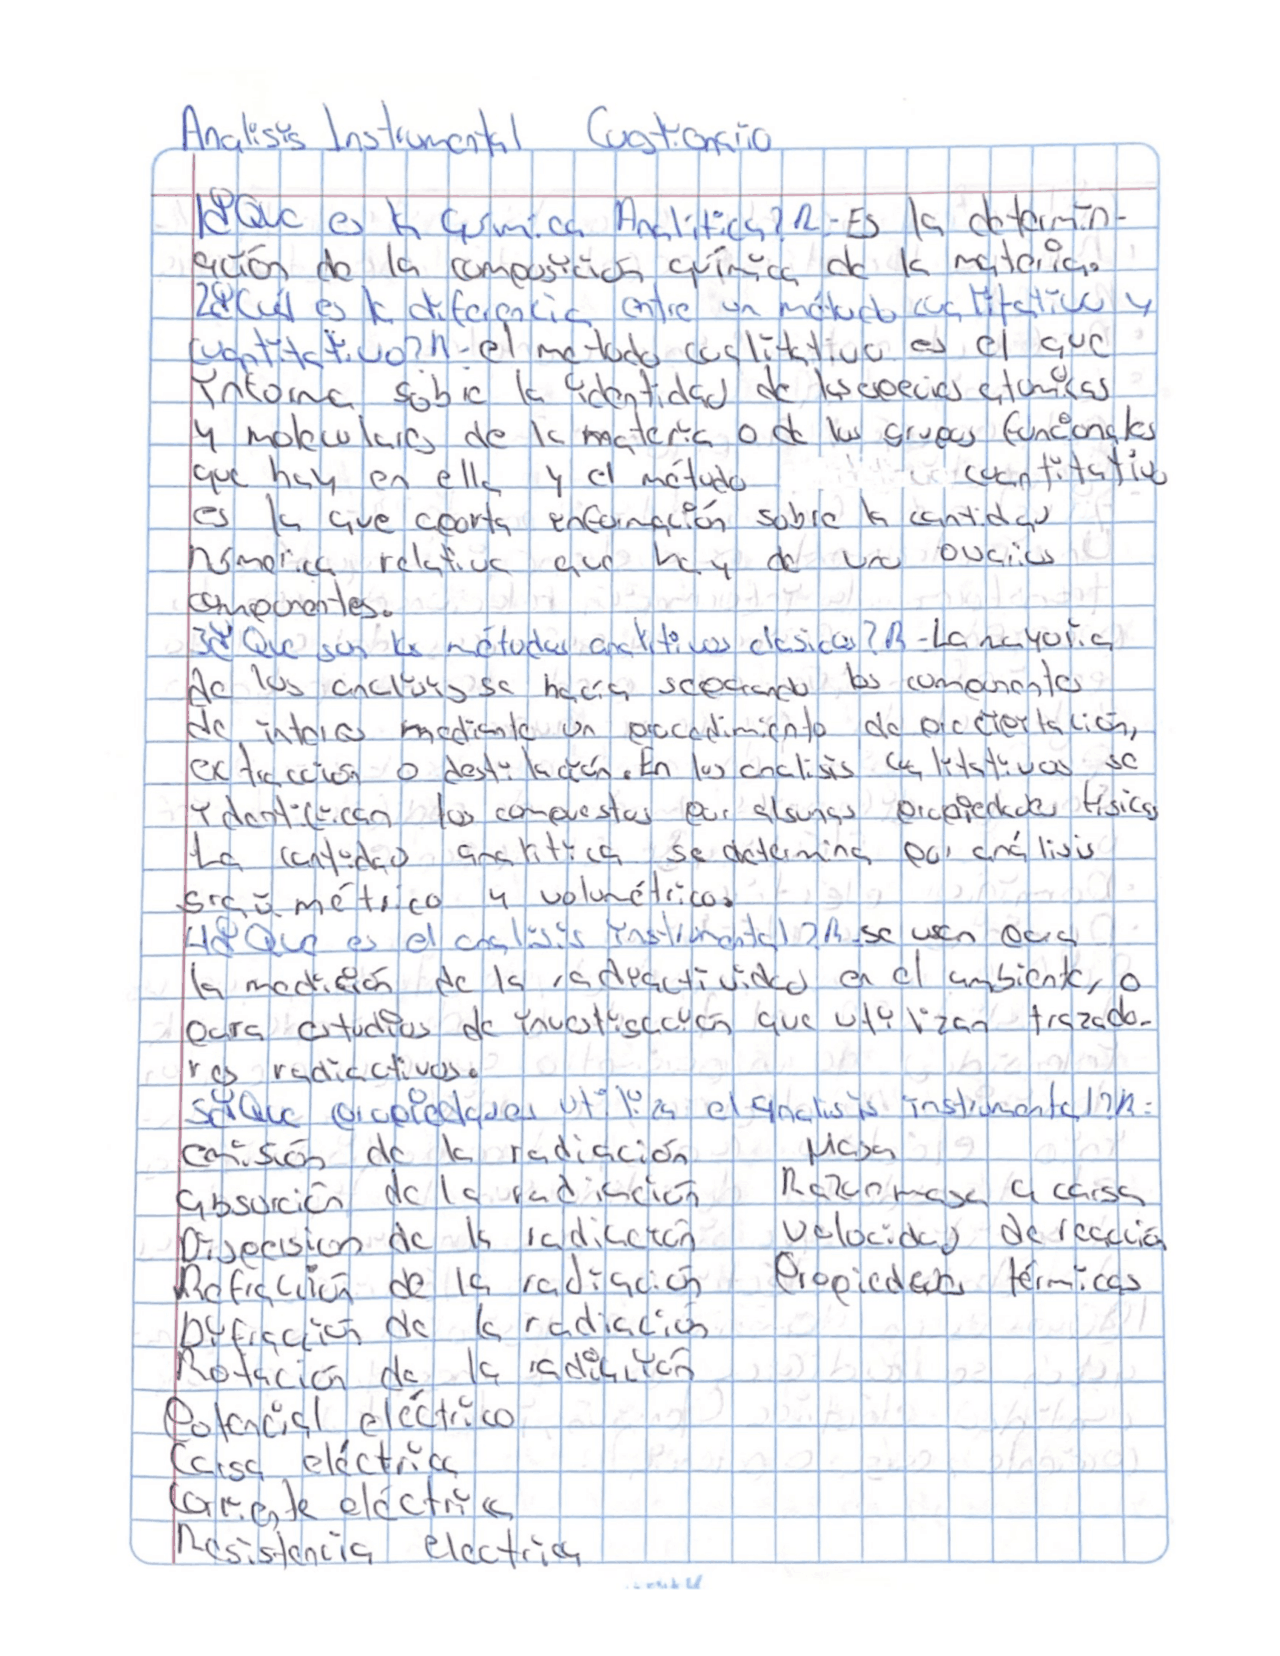 Analisis Instrumental Cuestionario
1¿Que es la química Analítica?R-Es la determin-
ación de la composición química de la materia.
2¿Cuál es la diferencia entre un método cualitativo y
cuantitativo?R-el metodo cualitativo es el que
informa sobre la identidad de las especies atomicas
y moleculares de la materia o de los grupos funcionales
que hay en ella y el método cuantitativo
es la que aporta información sobre la cantidad
númerica relativa que hay de uno o varios
componentes.
3¿Que son los métodos analitivos clasicos?R-La mayoria
de los analisis se hacia separando los componentes
de interes mediante un procedimiento de precipitación,
extracción o destilación. En los analisis cualitativos se
identifican los compuestos por algunas propiedades fisicas
La cantidad analitica se determina por análisis
gravimétrico y volumétrico.
4¿Que es el analisis instrumental?R-se usan para
la medición de la radioactividad en el ambiente, o
para estudios de investigación que utilizan trazado-
res radiactivos.
5¿Que propiedades utiliza el analisis instrumental?R-
emisión de la radiación Masa
absorción de la radiación Razon masa a carga
Dispersion de la radiación velocidad de reacción
Refracción de la radiación Propiedades térmicas
Difracción de la radiación
Rotación de la radiación
Potencial eléctrico
Carga eléctrica
Corriente eléctrica
Resistencia electrica